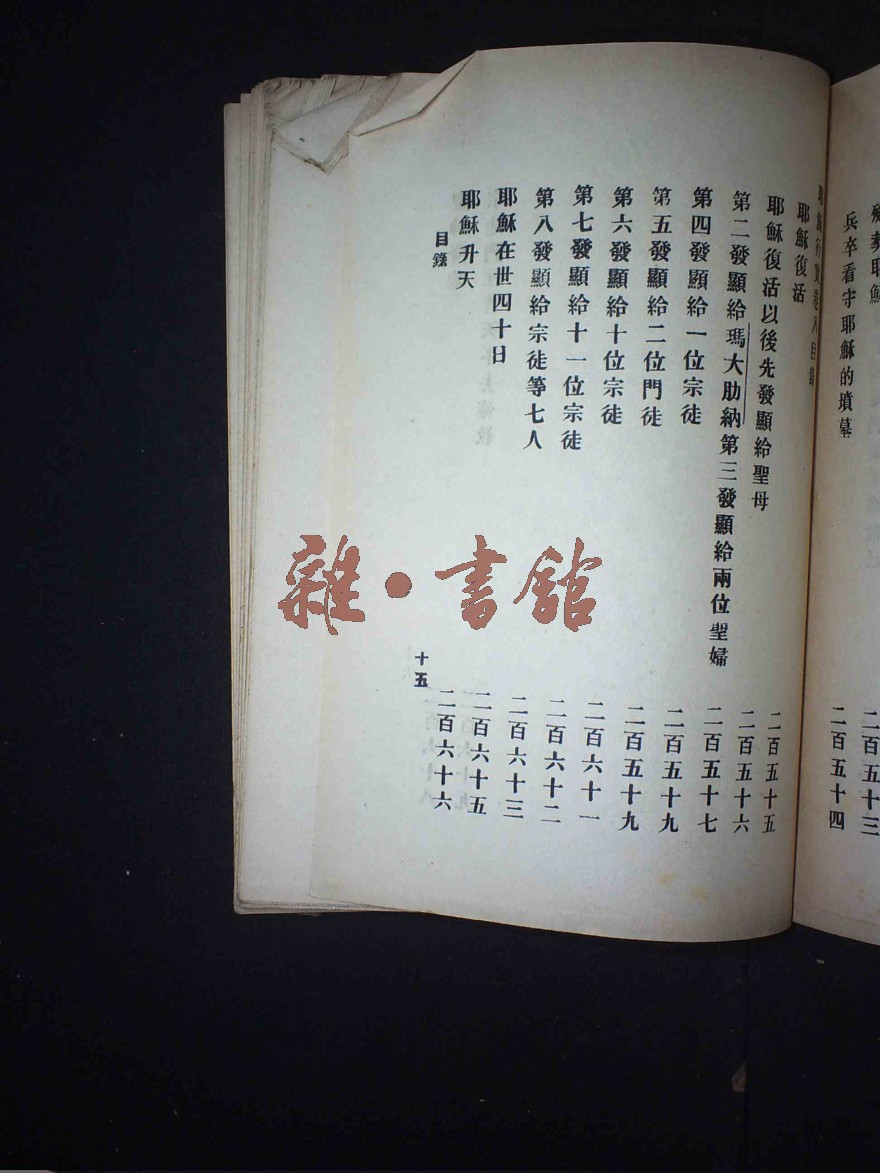 二百五十三
兵卒看守耶穌的墳墓 二百五十四
耶穌復活 二百五十五
耶穌復活以後先發顯給聖母 二百五十六
第二發顯給瑪大肋納第三發顯給兩位聖婦 二百五十七
第四發顯給一位宗徒 二百五十九
第五發顯給二位門徒 二百五十九
第六發顯給十位宗徒 二百六十一
第七發顯給十一位宗徒 二百六十二
第八發顯給宗徒等七人 二百六十三
耶穌在世四十日 二百六十五
耶穌升天 二百六十六
目錄 十五
雜·書館